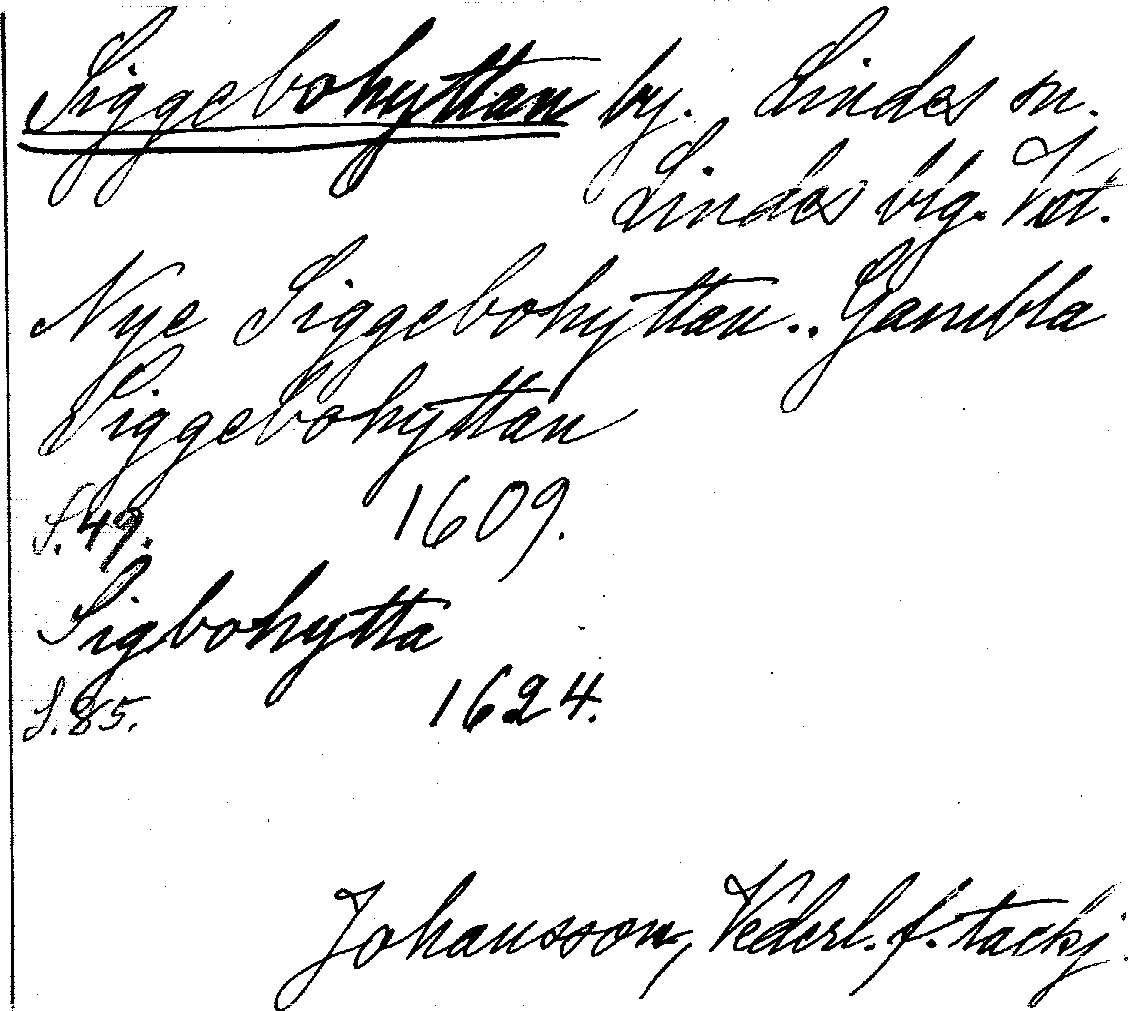 Siggebohyttan by. Lindes sn.
Lindes blg. Vst.
Nye Siggebohyttan.. Gambla
Siggebohyttan
S. 49. 1609.
Sigbohytta
S. 85. 1624.
Johansson, Vederl. f. tackj.